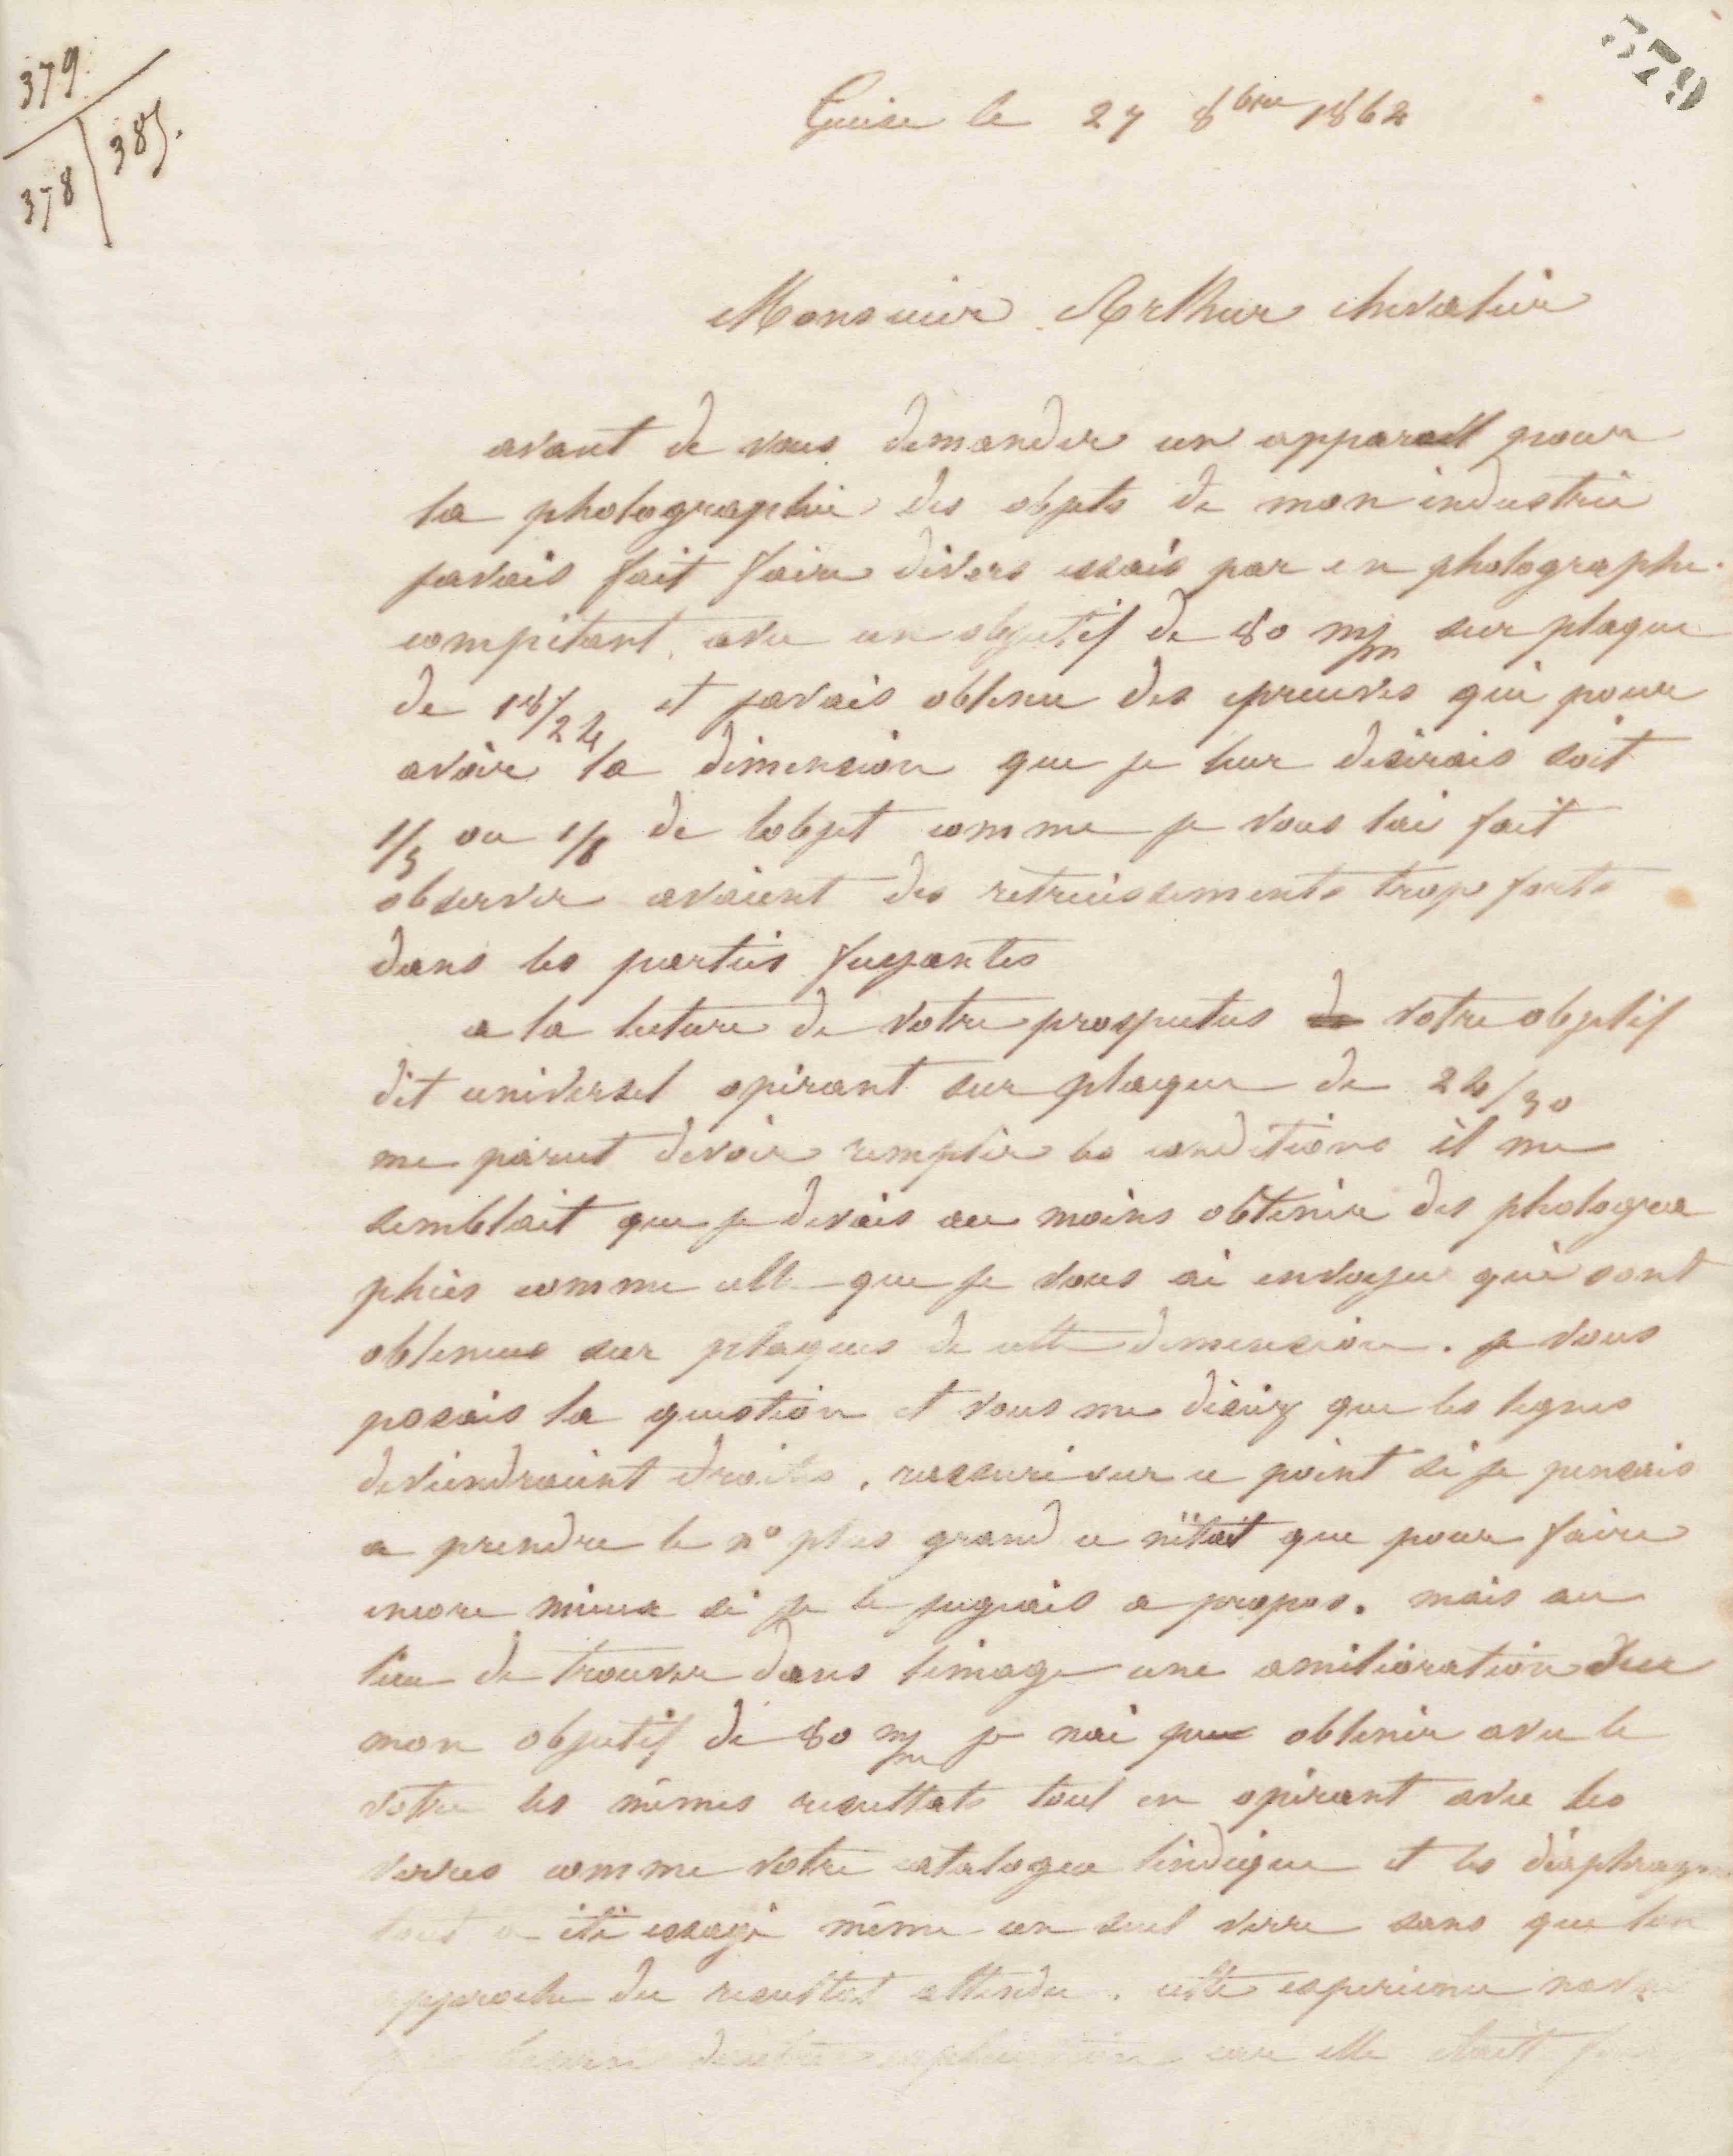 379
379
378 385.
Guise le 27 8bre 1862
Monsieur Arthur chevalier
avant de vous demander un appareil pour
la photographie des objets de mon industrie
javais fait faire divers essais par un photographe
compétant avec un objectif de 80 m/m sur plaque
de 18/24 et javais obtenu des epreuves qui pour
avoir la dimension que je leur desirais soit
1/5 ou 1/6 de lobjet comme je vous lai fait
observer avaient des retreuissements trop forts
dans les parties fuyantes
a la lecture de votre prospectus de votre objectif
dit universel opérant sur plaque de 24/30
me parut devoir remplir les conditions il me
semblait que je devais au moins obtenir des photogra
phies comme celle que je vous ai envoyee qui sont
obtenues sur plaques de cette dimension. je vous
posais la question et vous me disiez que les lignes
deviendraient droites, rassuré sur ce point si je pensais
a prendre le n° plus grand ce nétait que pour faire
encore mieux si je le jugeais a propos. mais au
lieu de trouver dans limage une amélioration sur
mon objectif de 80 m/m je nai pu obtenir avec le
votre les mêmes resultats tout en opérant avec les
verres comme votre catalogue lindique et les diaphragm
tout a été essayé même un seul verre sans que lon
approche du resultat attendu. cette experience
car elle était